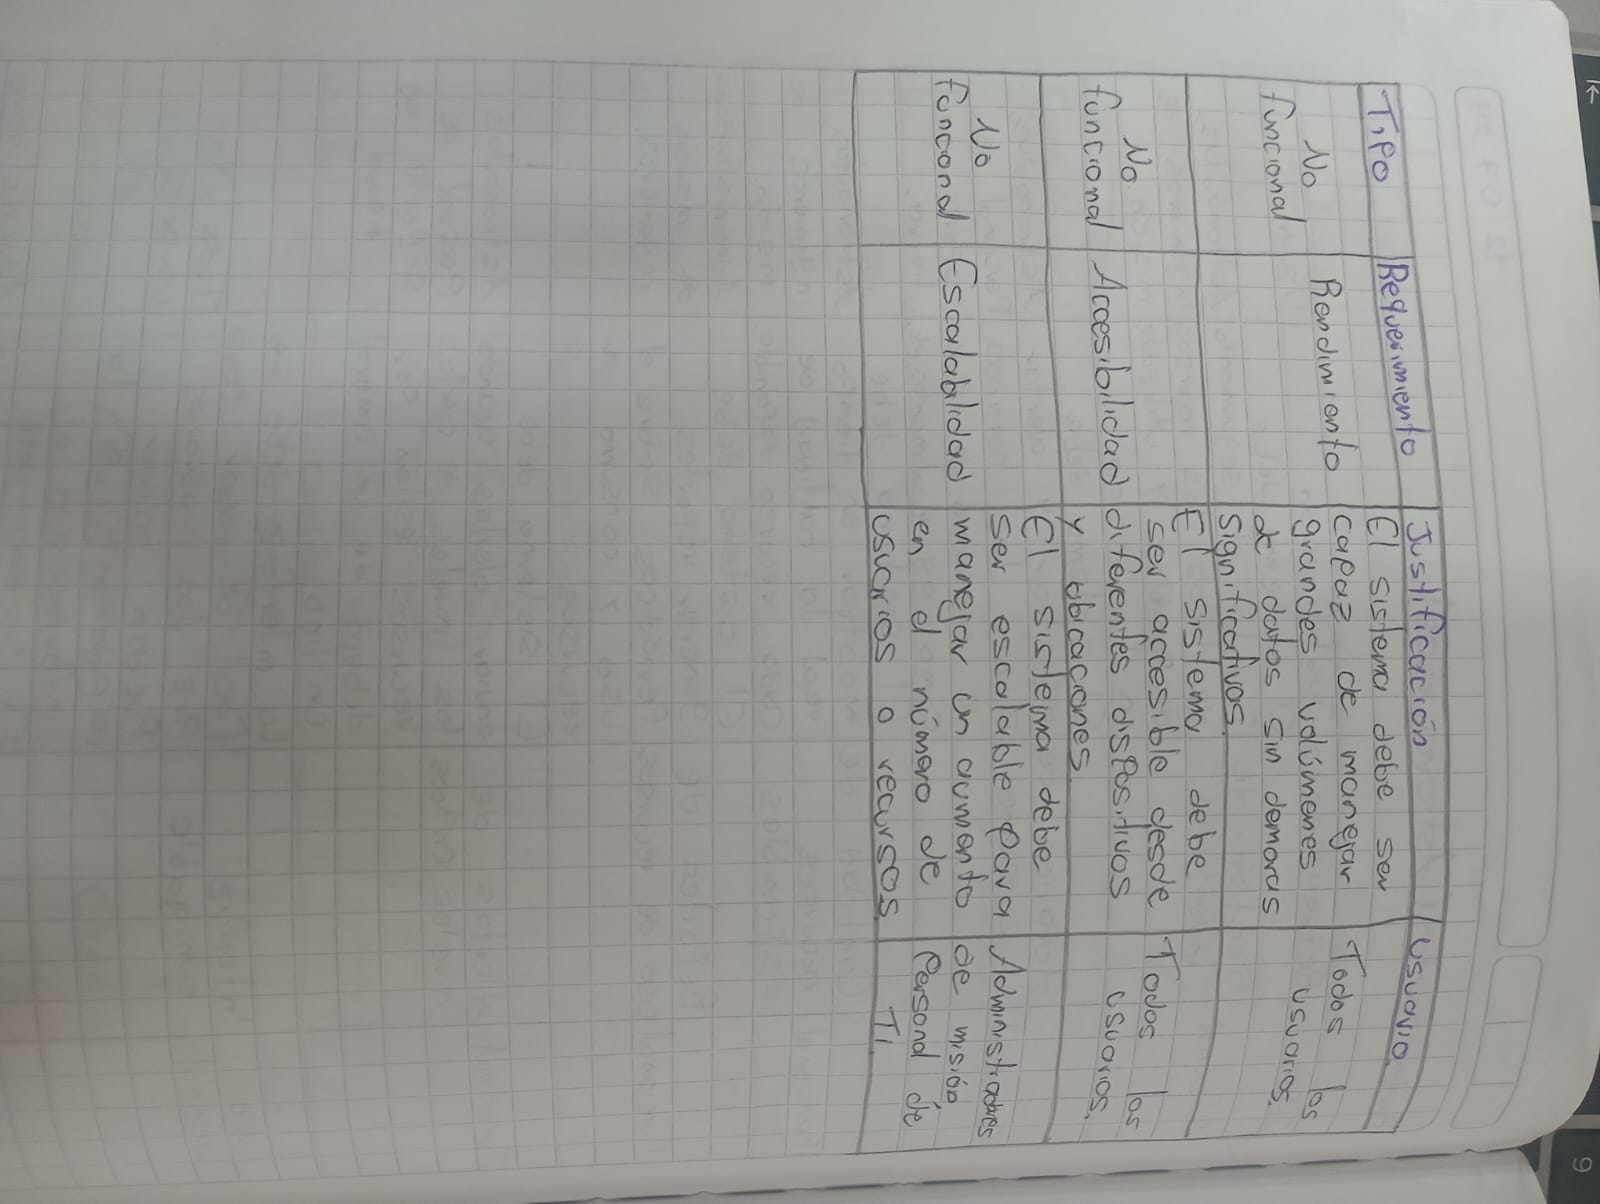 Tipo Requerimiento Justificación Usuario
No
funcional
Rendimiento
El sistema debe ser
capaz de manejar
grandes volúmenes
de datos sin demoras
significativos
Todos los
usuarios
No
funcional
Accesibilidad
El sistema debe
ser accesible desde
diferentes dispositivos
y ubicaciones
Todos los
usuarios
No
funcional
Escalabilidad
El sistema debe
ser escalable para
manejar un aumento
en el número de
usuarios o recursos
Administradores
de misión,
Personal de
TI
9